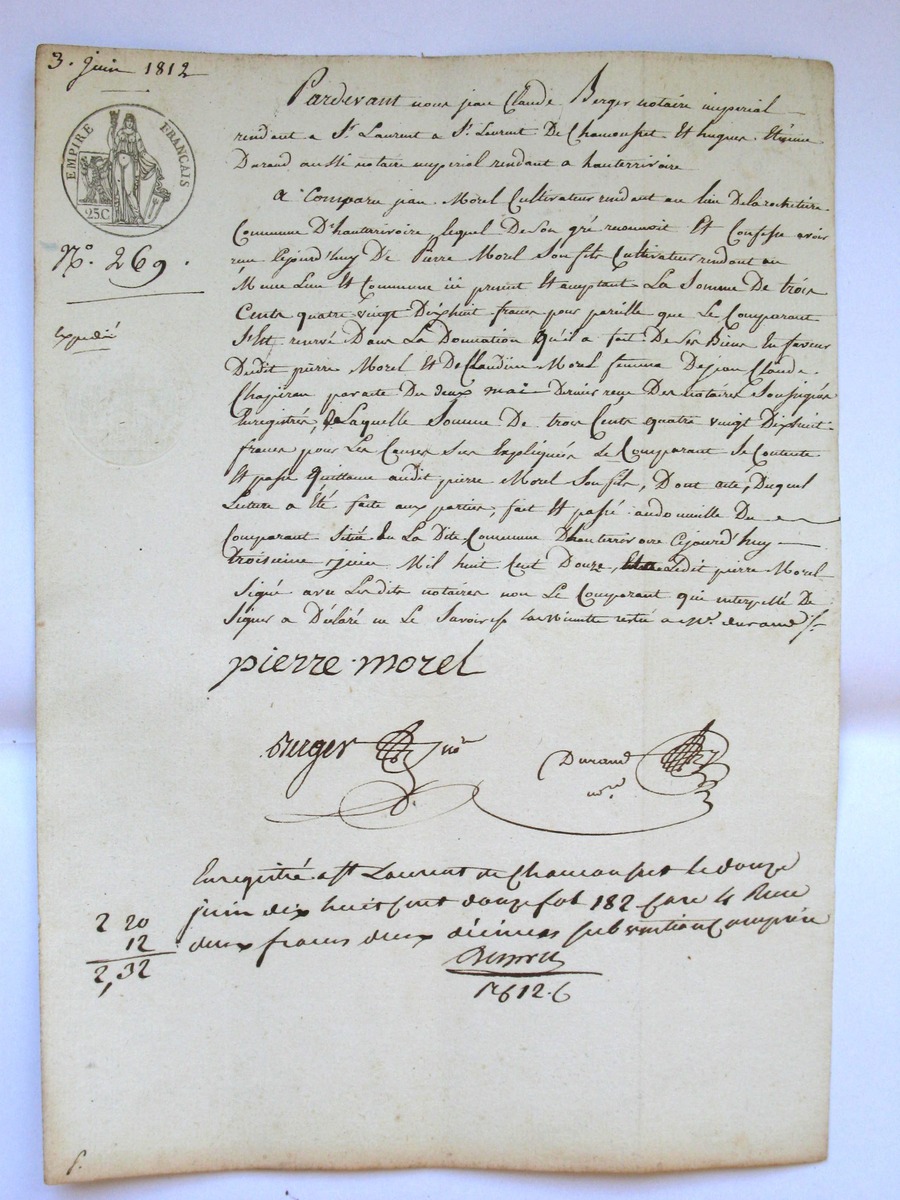 3. juin 1812
EMPIRE FRANÇAIS
25C
N.o 269.
expedié
Pardevant nous jean Claude Berger notaire imperial
residant a St. Laurent a St. Laurent De Chamousset Et hugues Etienne
Durand aussi notaire imperial residant a hauterivoire
A Comparu jean Morel Cultivateur residant au lieu Delarochetire
Commune D'hauterivoire, lequel De son gré reconnoit Et Confesse avoir
reçu Cejourd'huy De Pierre Morel Son fils Cultivateur residant au
Meme Lieu Et Commune ici present Et acceptant La Somme De trois
Cents quatre vingt Dixhuit francs pour pareille que Le Comparant
S'est reservé Dans La Donnation qu'il a fait De Ses Biens En faveur
Dudit pierre Morel Et De Claudine Morel femme De jean Claude
Chaperon par acte Du deux mai Dernier reçu Des notaires Soussignés
Enregistrés, De Laquelle Somme De trois Cents quatre vingt Dixhuit
francs pour Les Causes Sus Expliquées Le Comparant Se Contente
Et passe Quittance audit pierre Morel Son fils, Dont acte, Duquel
Lecture a Eté faite aux parties, fait Et passé audomicille Du
Comparant Situé En La Dite Commune D'hauterivoire Cejourd'huy
troisieme juin Mil huit Cent Douze, Ledit pierre Morel
Signé avec Lesdits notaires non Le Comparant qui interpellé De
Signer a Déclaré ne Le Savoir La Minute restée a Me. durand
pierre morel
Berger nre
Durand
nore
Enregistré a St Laurent de Chamousset le douze
juin dix huit Cent douze fol 182 Case 4 Reçu
deux francs deux décimes subvention Comprise
2 20
12
2,32
12.6